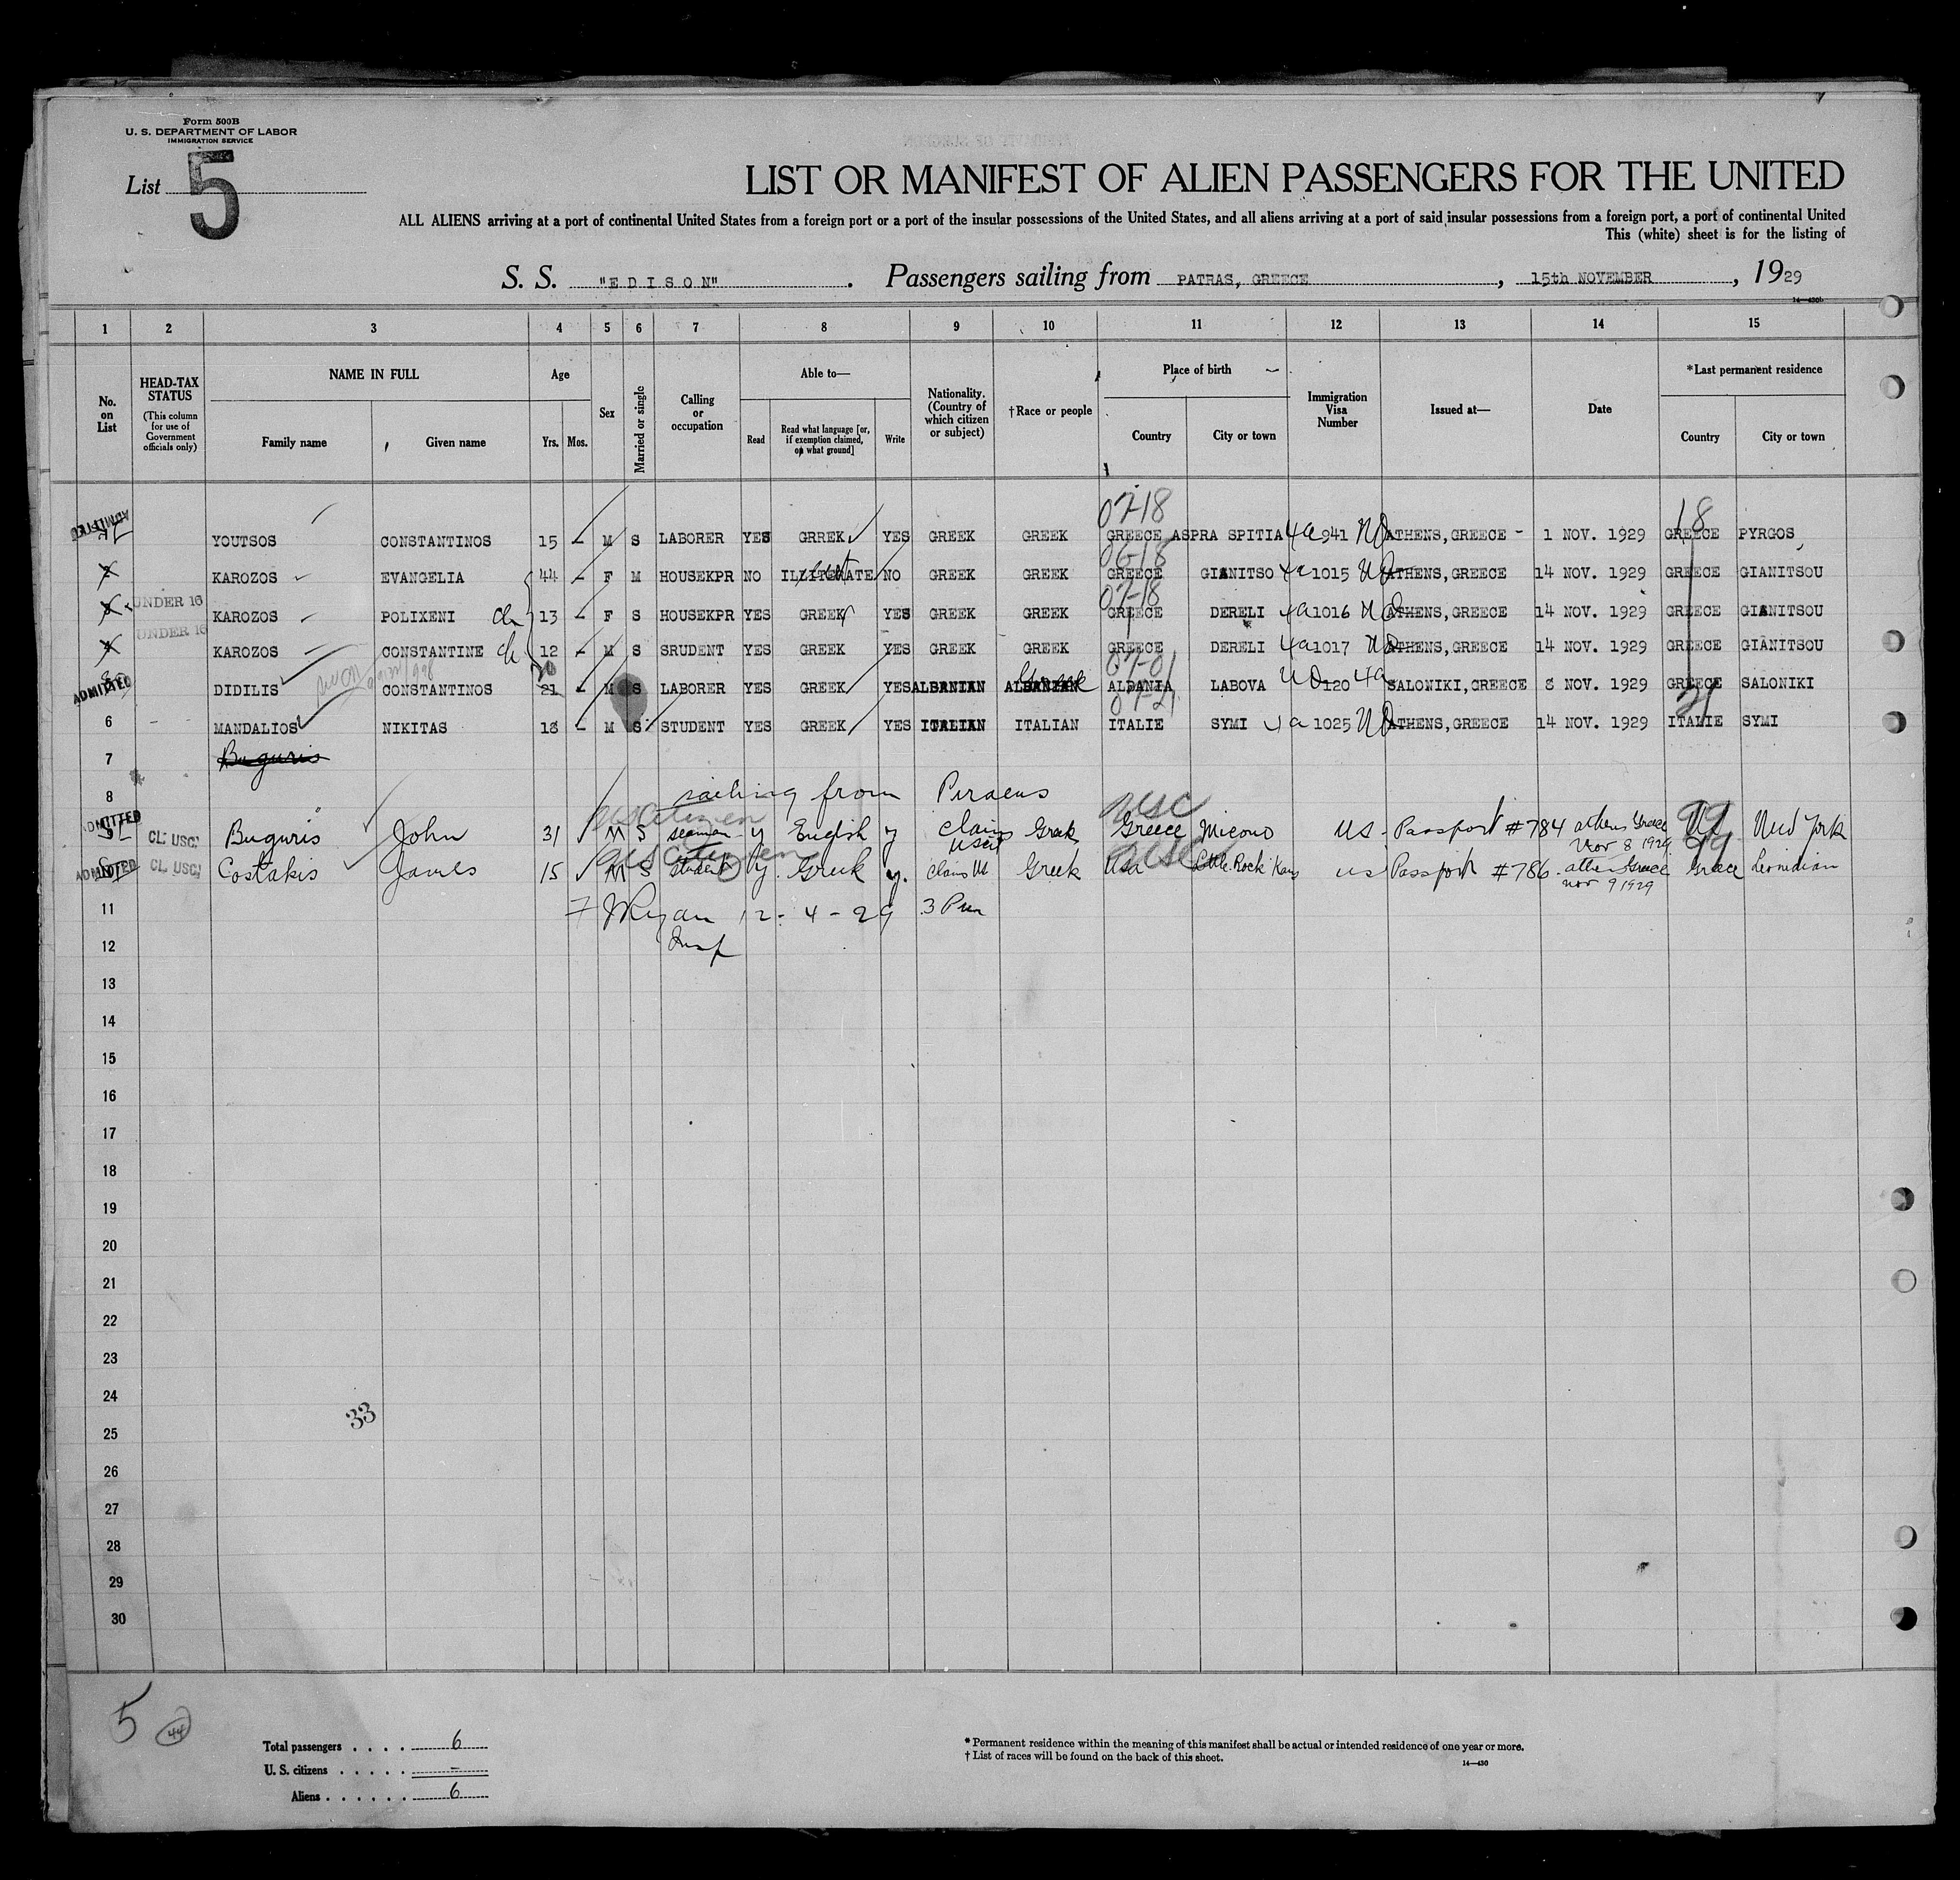 Form 500B
U. S. DEPARTMENT OF LABOR
IMMIGRATION SERVICE
List 5
LIST OR MANIFEST OF ALIEN PASSENGERS FOR THE UNITED
ALL ALIENS arriving at a port of continental United States from a foreign port or a port of the insular possessions of the United States, and all aliens arriving at a port of said insular possessions from a foreign port, a port of continental United
This (white) sheet is for the listing of
S. S. "EDISON". Passengers sailing from PATRAS, GREECE, 15th NOVEMBER, 1929
14—430b
1 2 3 4 5 6 7 8 9 10 11 12 13 14 15
No. on List
HEAD-TAX STATUS (This column for use of Government officials only)
NAME IN FULL
Family name Given name
Age
Yrs. Mos.
Sex
Married or single
Calling or occupation
Able to—
Read Read what language [or, if exemption claimed, on what ground] Write
Nationality. (Country of which citizen or subject)
†Race or people
Place of birth
Country City or town
Immigration Visa Number
Issued at—
Date
*Last permanent residence
Country City or town
07-18 18
YOUTSOS CONSTANTINOS 15 - M S LABORER YES GRREK YES GREEK GREEK GREECE ASPRA SPITIA 4a 941 ND ATHENS,GREECE - 1 NOV. 1929 GREECE PYRGOS
06-18
KAROZOS EVANGELIA 44 - F M HOUSEKPR NO ILLITERATE NO GREEK GREEK GREECE GIANITSO 4a 1015 ND ATHENS,GREECE 14 NOV. 1929 GREECE GIANITSOU
07-18
UNDER 16 KAROZOS POLIXENI ch 13 - F S HOUSEKPR YES GREEK YES GREEK GREEK GREECE DERELI 4a 1016 ND ATHENS,GREECE 14 NOV. 1929 GREECE GIANITSOU
UNDER 16 KAROZOS CONSTANTINE ch 12 - M S SRUDENT YES GREEK YES GREEK GREEK GREECE DERELI 4a 1017 ND ATHENS,GREECE 14 NOV. 1929 GREECE GIANITSOU
20 Greek 07-01
ADMITTED DIDILIS CONSTANTINOS 21 - M S LABORER YES GREEK YES ALBANIAN ALBANIAN ALBANIA LABOVA ND 120 4a SALONIKI,GREECE 8 NOV. 1929 GREECE SALONIKI
07-21 21
6 MANDALIOS NIKITAS 18 - M S STUDENT YES GREEK YES ITALIAN ITALIAN ITALIE SYMI 4a 1025 ND ATHENS,GREECE 14 NOV. 1929 ITALIE SYMI
7 Buguris
8 sailing from Piraeus
US Citizen USC 99
ADMITTED 9 CL. USC. Buguris John 31 M S seaman y English y Claims US Cit Greek Greece Micono US - Passport #784 athens Greece Nov 8 1929 US New York
US Citizen USC 99
ADMITTED 10 CL. USC. Costakis James 15 M S student y Greek y. Claims US Greek USA Little Rock Kans US Passport #786 - athens Greece nov 9 1929 Greece Leonidian
11 J Ryan 12-4-29 3 Pm
12 Insp
13
14
15
16
17
18
19
20
21
22
23
24
33
25
26
27
28
29
30
5 44
Total passengers . . . . 6
U. S. citizens . . . . . -
Aliens . . . . . . 6
* Permanent residence within the meaning of this manifest shall be actual or intended residence of one year or more.
† List of races will be found on the back of this sheet.
14—430